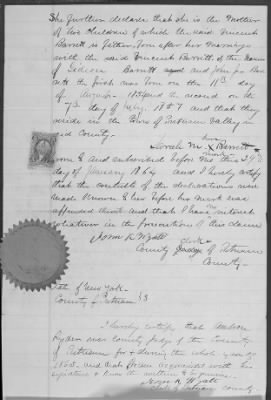 She further declares that she is the Mother
of two children of which the said Vincent
Barrett is father, born after her marriage
with the said Vincent Barrett, of the names
of Barrett and John
the first was born on the 11th day
of August and the second on the
7th day of July 1857 and that they
reside in the Town of Putnam Valley in
said County.
her
Sarah M. X Barrett
mark
Sworn to and subscribed before me this 29th
day of January 1864 and I hereby certify
that the contents of the declarations were
made known to her before her mark was
affixed and that I have no interest
in the prosecution of this claim
John R. Wyatt
Clerk
County Judge of Putnam
County
State of New York
County of Putnam SS
I hereby certify that Ambrose
Ryder was County Judge of the County
of Putnam for & during the whole year of
and that I am acquainted with his
signature
Wyatt
Clerk of Putnam County